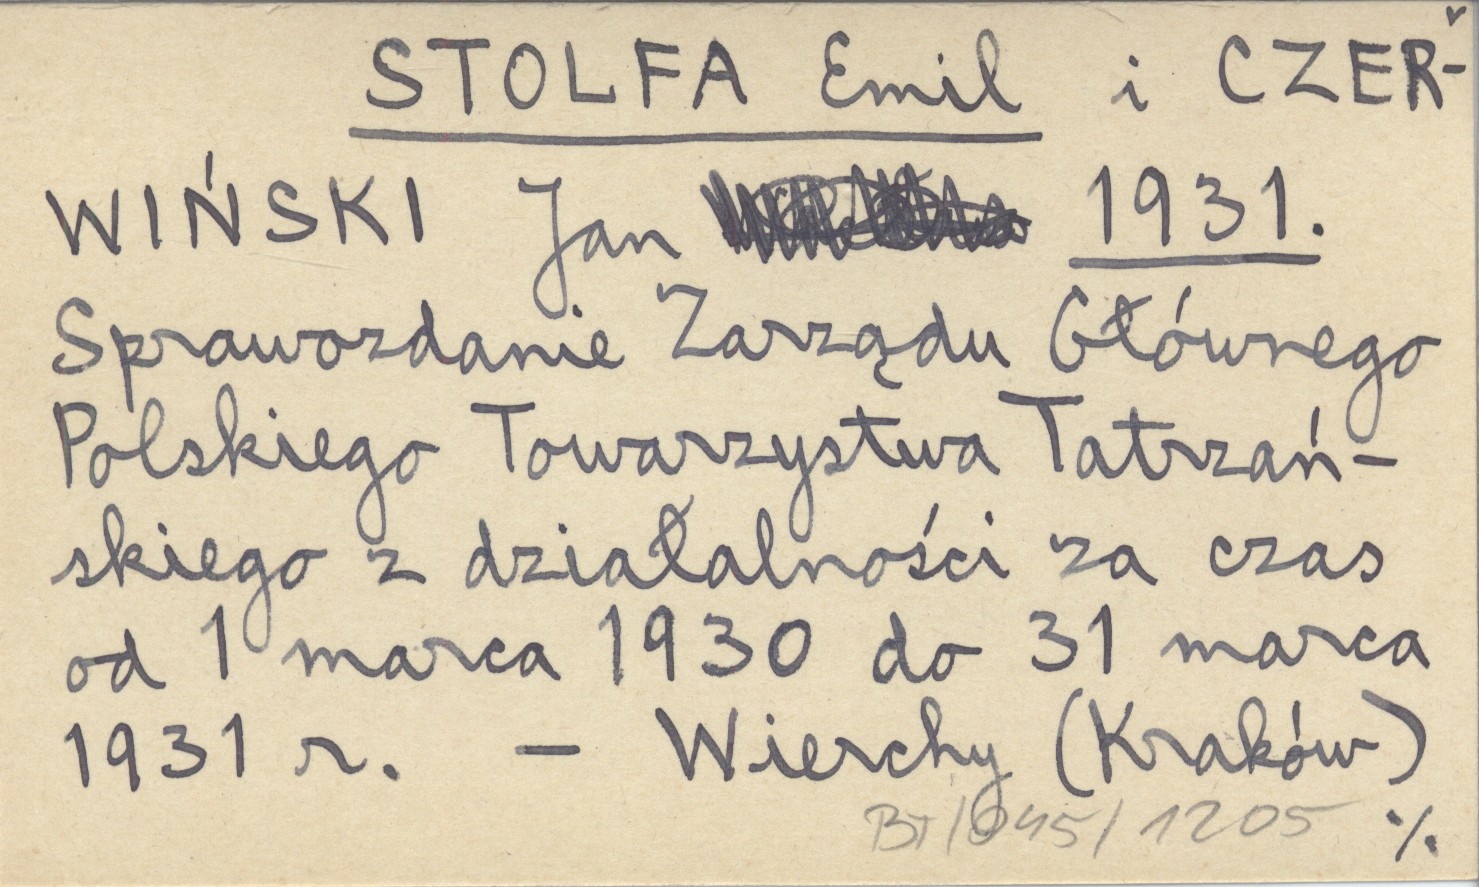 STOLFA Emil i CZER-
WIŃSKI Jan 1931.
Sprawozdanie Zarządu Głównego
Polskiego Towarzystwa Tatrzań-
skiego z działalności za czas
od 1 marca 1930 do 31 marca
1931 r. — Wierchy (Kraków)
BT/045/1205 ·/.